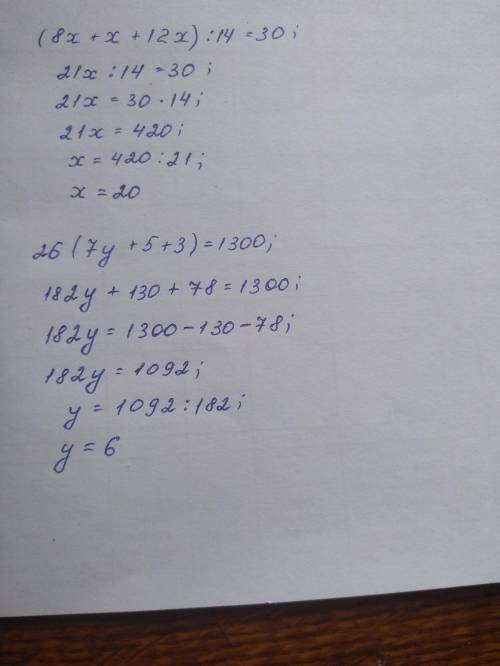 (8x + x + 12x) : 14 = 30;
21x : 14 = 30;
21x = 30 · 14;
21x = 420;
x = 420 : 21;
x = 20
26 (7y + 5 + 3) = 1300;
182y + 130 + 78 = 1300;
182y = 1300 - 130 - 78;
182y = 1092;
y = 1092 : 182;
y = 6